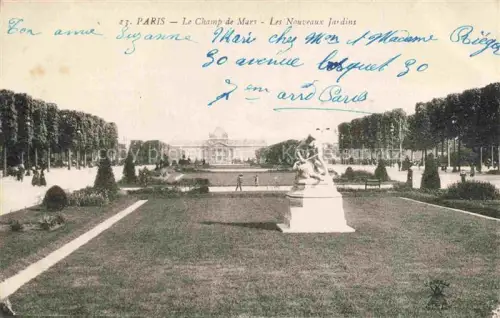 23. PARIS — Le Champ de Mars - Les Nouveaux Jardins
Ton amie Suzanne
Mais chez Mon et Madame
30 avenue bosquet 30
7em arrd Paris